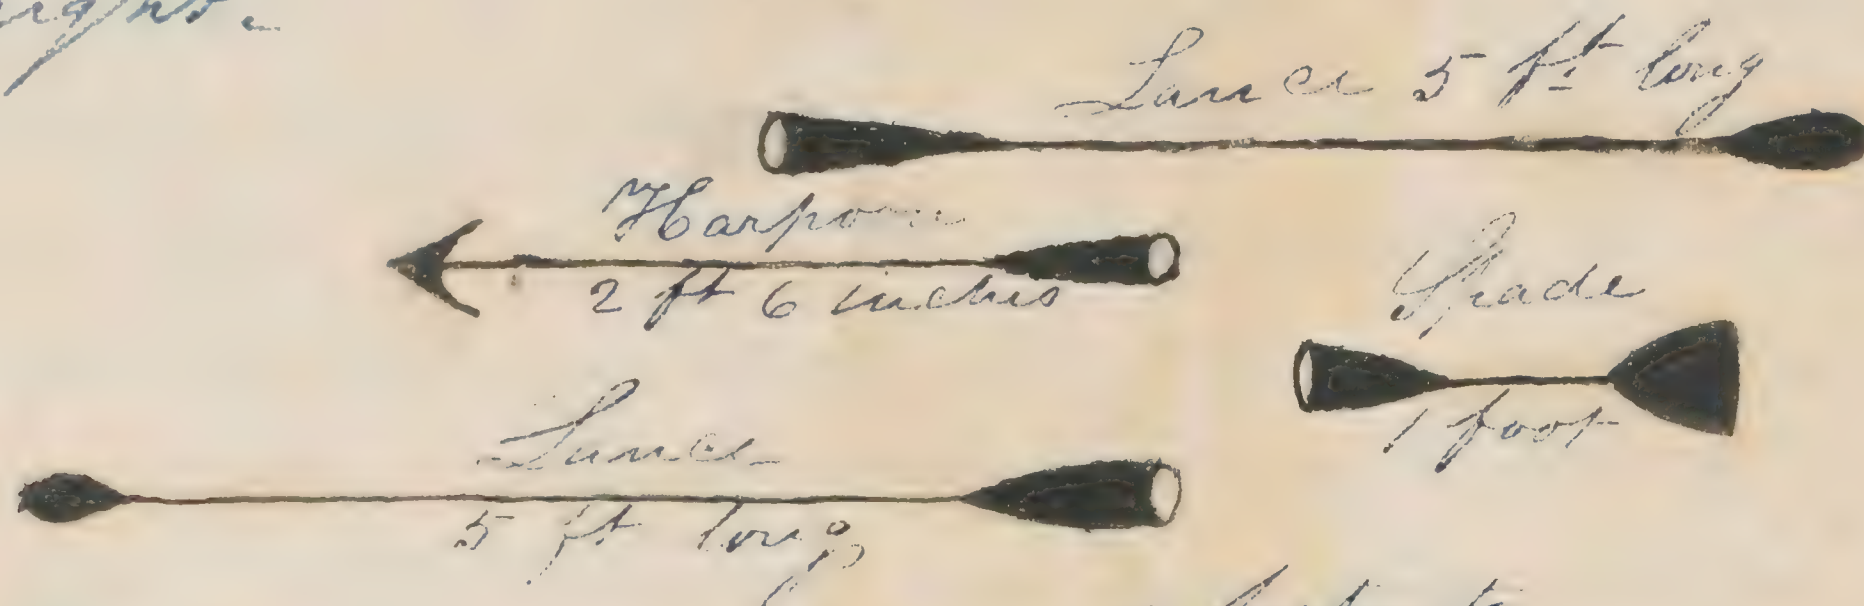 Lance 5 ft long
Harpoon
2 ft 6 inches
Spade
1 foot
Lance
5 ft long